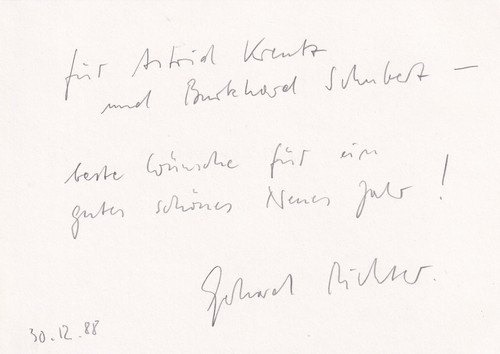 für Astrid Kreutz
und Burkhard Schubert –
beste Wünsche für ein
gutes schönes Neues Jahr !
Gerhard Richter.
30.12.88